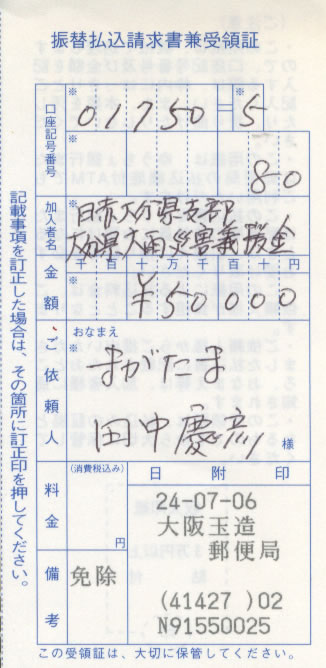 振替払込請求書兼受領証
口座記号番号
※ 01750=※5
※ 80
加入者名
※ 日赤大分県支部
大分県大雨災害義援金
金額
千百十万千百十円
※ ¥50000
ご依頼人
おなまえ
※ まがたま
田中慶彦 様
料金
(消費税込み)
円
備考
免除
日附印
24-07-06
大阪玉造
郵便局
(41427 )02
N91550025
記載事項を訂正した場合は、その箇所に訂正印を押してください。
この受領証は、大切に保管してください。